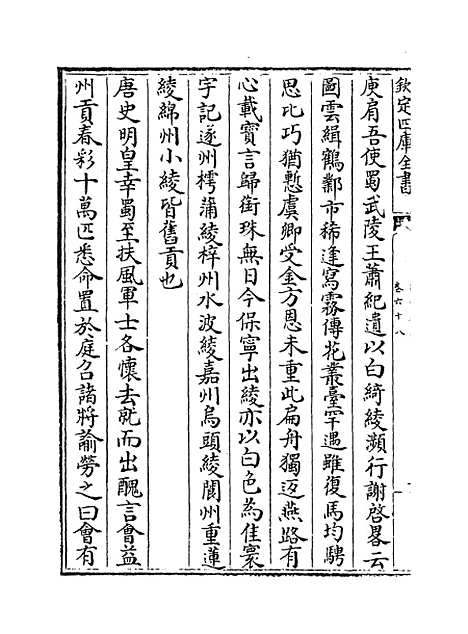 欽定四庫全書
卷六十八
庾肩吾使蜀武陵王蕭紀遺以白綺綾瀕行謝啓畧云
圖雲緝鶴鄴市稀逢寫霧傳花叢臺罕遇雖復馬均騁
思比巧猶慙虞卿受金方恩未重此扁舟獨返燕路有
心載寳言歸銜珠無日今保寧出綾亦以白色為佳寰
宇記遂州樗蒲綾梓州水波綾嘉州烏頭綾閬州重蓮
綾綿州小綾皆舊貢也
唐史明皇幸蜀至扶風軍士各懷去就而出醜言會益
州貢春彩十萬匹悉命置於庭召諸將諭勞之曰會有